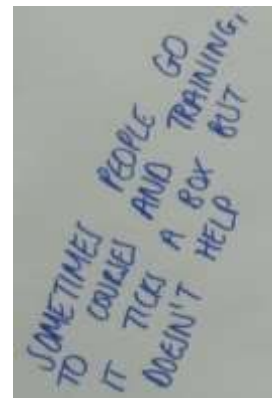 SOMETIMES PEOPLE GO
TO COURSES AND TRAINING,
IT TICKS A BOX BUT
DOESN'T HELP